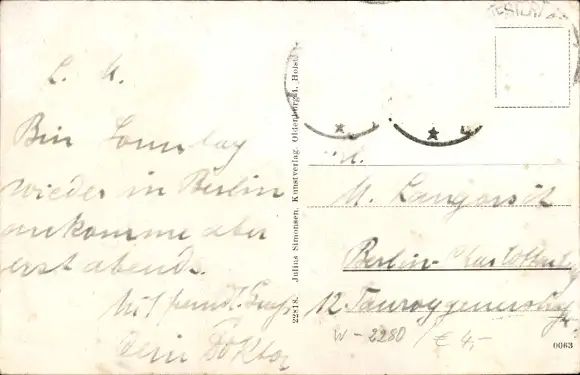 L. M.
Bin Sonntag
wieder in Berlin
ankomme aber
erst abends.
Mit freundl. Gruß
Dein Doktor
22818. Julius Simonsen, Kunstverlag, Oldenburg i. Holst.
M.
Berlin-Charlottenbg
12. Tauroggenerstr.
W - 2280 / € 4,-
0063